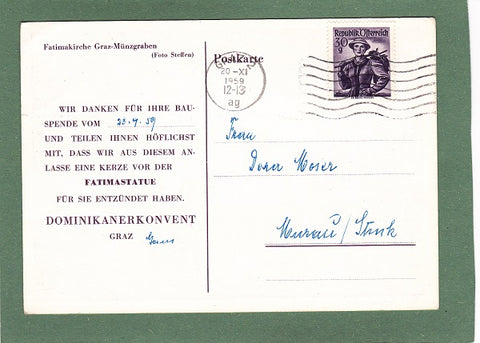 Fatimakirche Graz-Münzgraben
(Foto Steffen)
WIR DANKEN FÜR IHRE BAU-
SPENDE VOM 23.4.59
UND TEILEN IHNEN HÖFLICHST
MIT, DASS WIR AUS DIESEM AN-
LASSE EINE KERZE VOR DER
FATIMASTATUE
FÜR SIE ENTZÜNDET HABEN.
DOMINIKANERKONVENT
GRAZ
Postkarte
20-XI
1959
12-13
ag
Republik Österreich
30 g
Frau
Dora Moser
Murau/Stmk